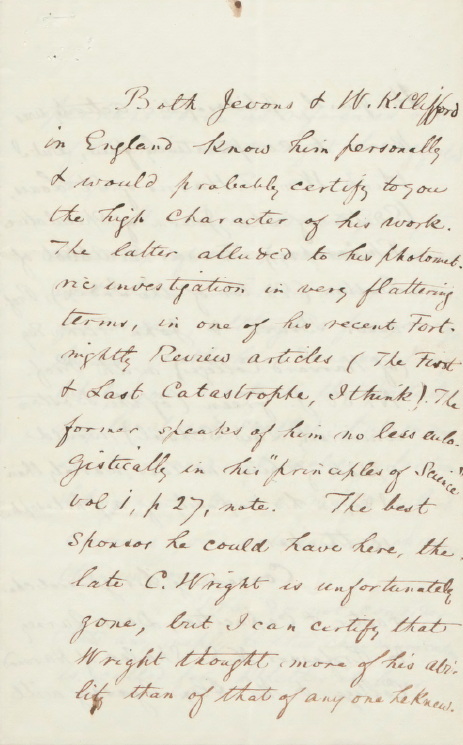 Both Jevons & W. K. Clifford
in England know him personally
& would probably certify to you
the high character of his work.
The latter alluded to his photomet-
ric investigation in very flattering
terms, in one of his recent Fort-
nightly Review articles (The First
& Last Catastrophe, I think). The
former speaks of him no less eulo-
gistically in his "principles of Science"
vol 1, p 27, note. The best
sponsor he could have here, the
late C. Wright is unfortunately
gone, but I can certify that
Wright thought more of his abi-
lity than of that of any one he knew.